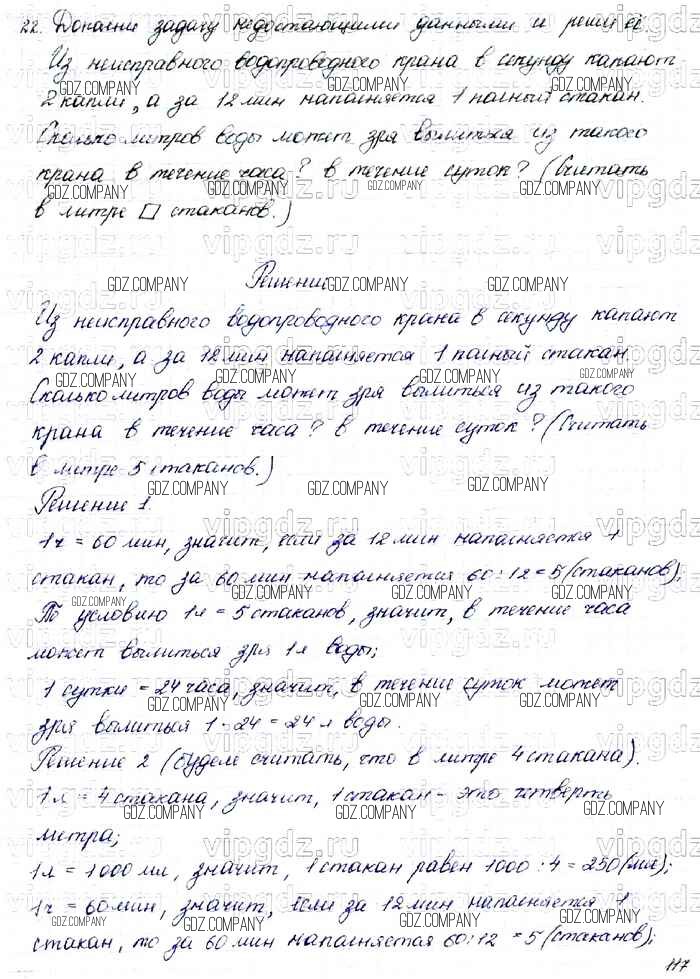 22. Дополни задачу недостающими данными и реши её.
Из неисправного водопроводного крана в секунду капают
2 капли, а за 12 мин наполняется 1 полный стакан.
Сколько литров воды может зря вылиться из такого
крана в течение часа? в течение суток? (Считать
в литре □ стаканов.)
Решение
Из неисправного водопроводного крана в секунду капают
2 капли, а за 12 мин наполняется 1 полный стакан.
Сколько литров воды может зря вылиться из такого
крана в течение часа? в течение суток? (Считать
в литре 5 стаканов.)
Решение 1.
1ч = 60 мин, значит, если за 12 мин наполняется 1
стакан, то за 60 мин наполняется 60:12=5(стаканов);
По условию 1л = 5 стаканов, значит, в течение часа
может вылиться зря 1л воды;
1 сутки = 24 часа, значит, в течение суток может
зря вылиться 1·24=24 л воды.
Решение 2 (будем считать, что в литре 4 стакана).
1л = 4 стакана, значит, 1 стакан - это четверть
литра;
1л = 1000 мл, значит, 1 стакан равен 1000:4=250(мл);
1ч = 60мин, значит, если за 12 мин наполняется 1
стакан, то за 60 мин наполняется 60:12 = 5(стаканов);
117
vipgdz.ru
GDZ.COMPANY